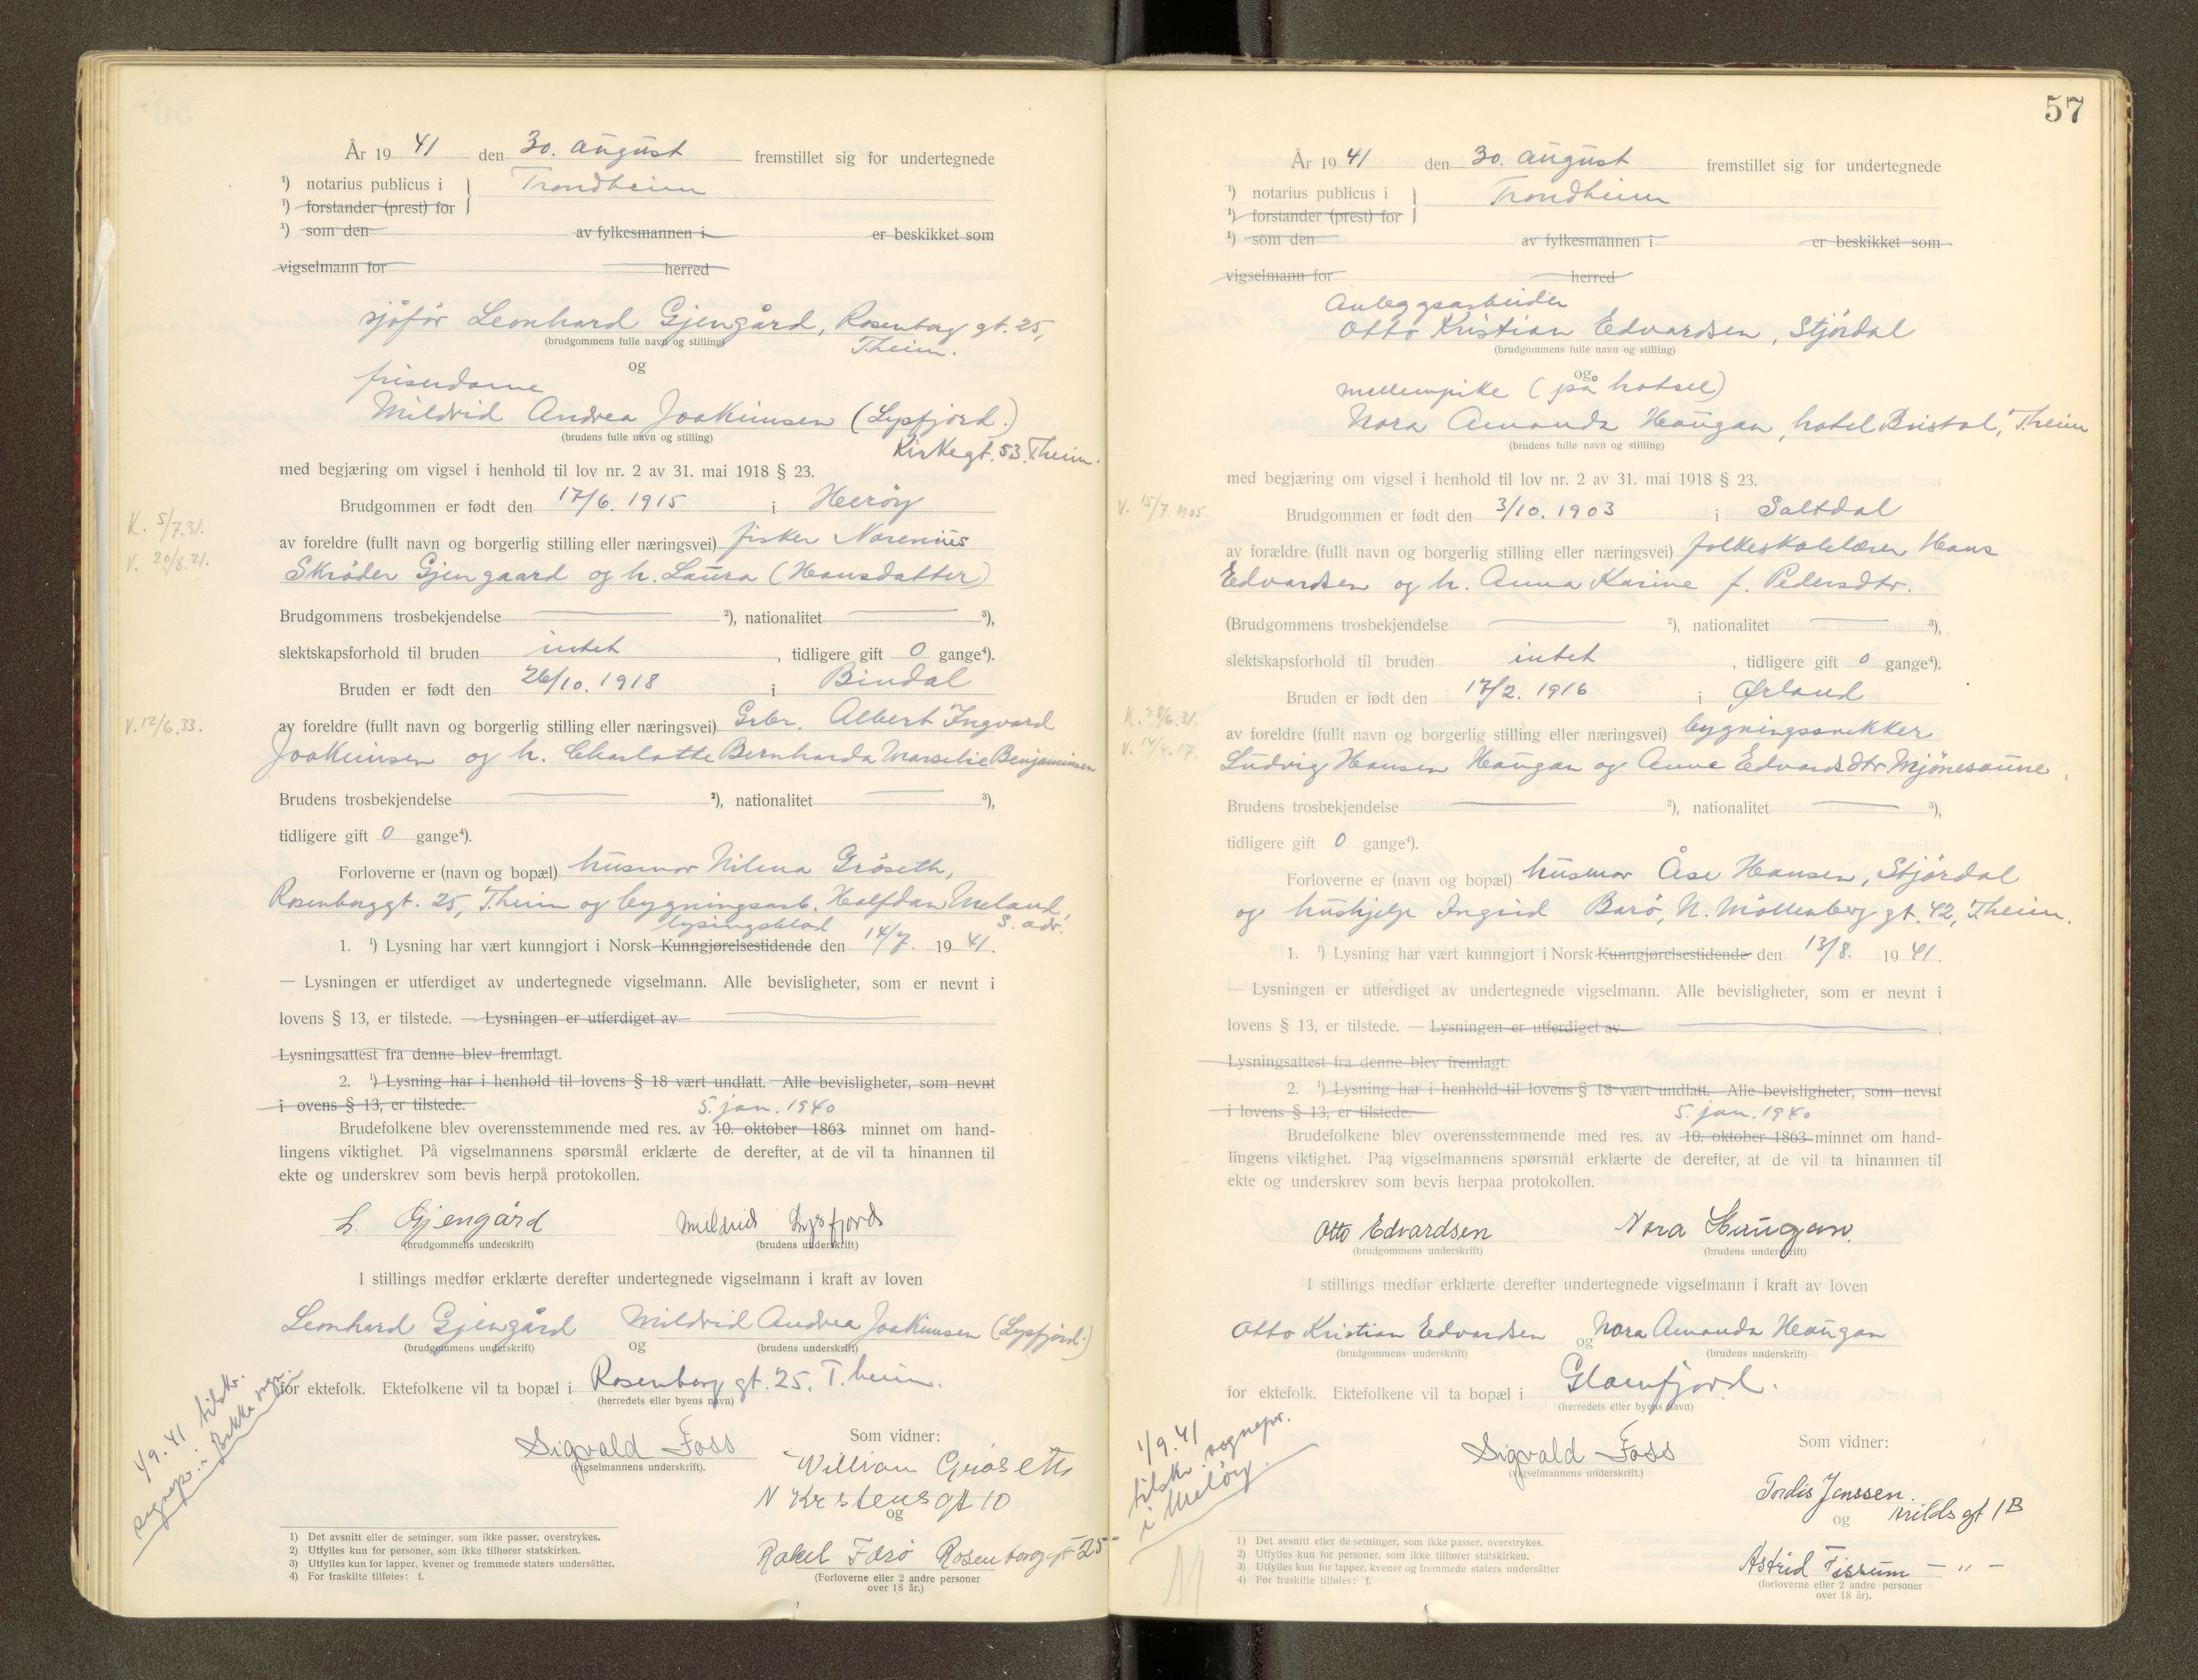 År 19 41 den 30. august fremstillet sig for undertegnede
¹) notarius publicus i } Trondheim
¹) forstander (prest) for
¹) som den av fylkesmannen i er beskikket som
vigselmann for herred
sjåfør Leonhard Gjengård, Rosenborg gt. 25,
(brudgommens fulle navn og stilling)
T.heim.
og
friserdame
Mildrid Andrea Joakimsen (Lysfjord.)
(brudens fulle navn og stilling)
Kirkegt. 53. T.heim.
med begjæring om vigsel i henhold til lov nr. 2 av 31. mai 1918 § 23.
Brudgommen er født den 17/6. 1915 i Herøy
K. 5/7.31.
av foreldre (fullt navn og borgerlig stilling eller næringsvei) fisker Norenius
V. 20/8.21.
Skrøder Gjengaard og h. Laura (Hansdatter)
Brudgommens trosbekjendelse ²), nationalitet ³),
slektskapsforhold til bruden intet , tidligere gift 0 gange⁴).
Bruden er født den 26/10. 1918 i Bindal
V. 12/6.33.
av foreldre (fullt navn og borgerlig stilling eller næringsvei) Grbr. Albert Ingvard
Joakimsen og h. Charlotte Bernharda Marselie Benjaminsen
Brudens trosbekjendelse ²), nationalitet ³),
tidligere gift 0 gange⁴).
Forloverne er (navn og bopæl) husmor Nilma Grøseth,
Rosenborggt. 25, T.heim og bygningsarb. Halfdan Meland,
s. adr.
lysingsblad
1. ¹) Lysning har vært kunngjort i Norsk Kunngjørelsestidende den 14/7. 19 41.
— Lysningen er utferdiget av undertegnede vigselmann. Alle bevisligheter, som er nevnt i
lovens § 13, er tilstede. — Lysningen er utferdiget av
Lysningsattest fra denne blev fremlagt.
2. ¹) Lysning har i henhold til lovens § 18 vært undlatt. Alle bevisligheter, som nevnt
i ovens § 13, er tilstede.
5. jan. 1940
Brudefolkene blev overensstemmende med res. av 10. oktober 1863 minnet om hand-
lingens viktighet. På vigselmannens spørsmål erklærte de derefter, at de vil ta hinannen til
ekte og underskrev som bevis herpå protokollen.
L. Gjengård Mildrid Lysfjord
(brudgommens underskrift) (brudens underskrift)
I stillings medfør erklærte derefter undertegnede vigselmann i kraft av loven
Leonhard Gjengård og Mildrid Andrea Joakimsen (Lysfjord.)
(brudgommens underskrift) (brudens underskrift)
for ektefolk. Ektefolkene vil ta bopæl i Rosenborg gt. 25, T.heim.
(herredets eller byens navn)
1/9.41 tilskr.
sognepr. i Bakke
Sigvald Foss
(vigselmannens underskrift).
Som vidner:
William Grøseth
N Kr stensgt 10
og
Rakel Færø Rosenborg gt 25
(Forloverne eller 2 andre personer
over 18 år.)
1) Det avsnitt eller de setninger, som ikke passer, overstrykes.
2) Utfylles kun for personer, som ikke tilhører statskirken.
3) Utfylles kun for lapper, kvener og fremmede staters undersåtter.
4) For fraskilte tilføies: f.
57
År 19 41 den 30. august fremstillet sig for undertegnede
¹) notarius publicus i } Trondheim
¹) forstander (prest) for
¹) som den av fylkesmannen i er beskikket som
vigselmann for herred
Anleggsarbeider
Otto Kristian Edvardsen, Stjørdal
(brudgommens fulle navn og stilling)
og
mellempike (på hotsel)
Nora Amanda Haugan, hotel Bristol, T.heim
(brudens fulle navn og stilling)
med begjæring om vigsel i henhold til lov nr. 2 av 31. mai 1918 § 23.
V. 15/7. 1905.
Brudgommen er født den 3/10. 1903 i Saltdal
av forældre (fullt navn og borgerlig stilling eller næringsvei) folkeskolelærer Hans
Edvardsen og h. Anna Karine f. Pedersdtr.
(Brudgommens trosbekjendelse ²), nationalitet ³),
slektskapsforhold til bruden intet , tidligere gift 0 gange⁴).
Bruden er født den 17/2. 1916 i Ørland
K. 28/6.31.
av foreldre (fullt navn og borgerlig stilling eller næringsvei) bygningssnikker
V. 14/4.17.
Ludvig Hansen Haugan og Anne Edvardsdtr. Mjønesaune.
Brudens trosbekjendelse ²), nationalitet ³),
tidligere gift 0 gange⁴).
Forloverne er (navn og bopæl) husmor Åse Hansen, Stjørdal
og hushjelp Ingrid Barø, N. Møllenberg gt. 42, T.heim.
1. ¹) Lysning har vært kunngjort i Norsk Kunngjørelsestidende den 13/8. 19 41.
— Lysningen er utferdiget av undertegnede vigselmann. Alle bevisligheter, som er nevnt i
lovens § 13, er tilstede. — Lysningen er utferdiget av
Lysningsattest fra denne blev fremlagt.
2. ¹) Lysning har i henhold til lovens § 18 vært undlatt. Alle bevisligheter, som nevnt
i lovens § 13, er tilstede.
5. jan. 1940
Brudefolkene blev overensstemmende med res. av 10. oktober 1863 minnet om hand-
lingens viktighet. Paa vigselmannens spørsmål erklærte de derefter, at de vil ta hinannen til
ekte og underskrev som bevis herpaa protokollen.
Otto Edvardsen Nora Haugan.
(brudgommens underskrift) (brudens underskrift)
I stillings medfør erklærte derefter undertegnede vigselmann i kraft av loven
Otto Kristian Edvardsen og Nora Amanda Haugan
(brudgommens underskrift) (brudens underskrift)
for ektefolk. Ektefolkene vil ta bopæl i Glomfjord.
(herredets eller byens navn)
1/9.41
tilskr. sognepr.
i Meløy.
Sigvald Foss
(vigselmannens underskrift.)
Som vidner:
Tordis Jenssen.
og
gt 1B
Astrid Tissum — " —
(forloverne eller 2 andre personer
over 18 år).
1) Det avsnitt eller de setninger, som ikke passer, overstrykes.
2) Utfylles kun for personer, som ikke tilhører statskirken.
3) Utfylles kun for lapper, kvener og fremmede staters undersåtter
4) For fraskilte tilføies: f.